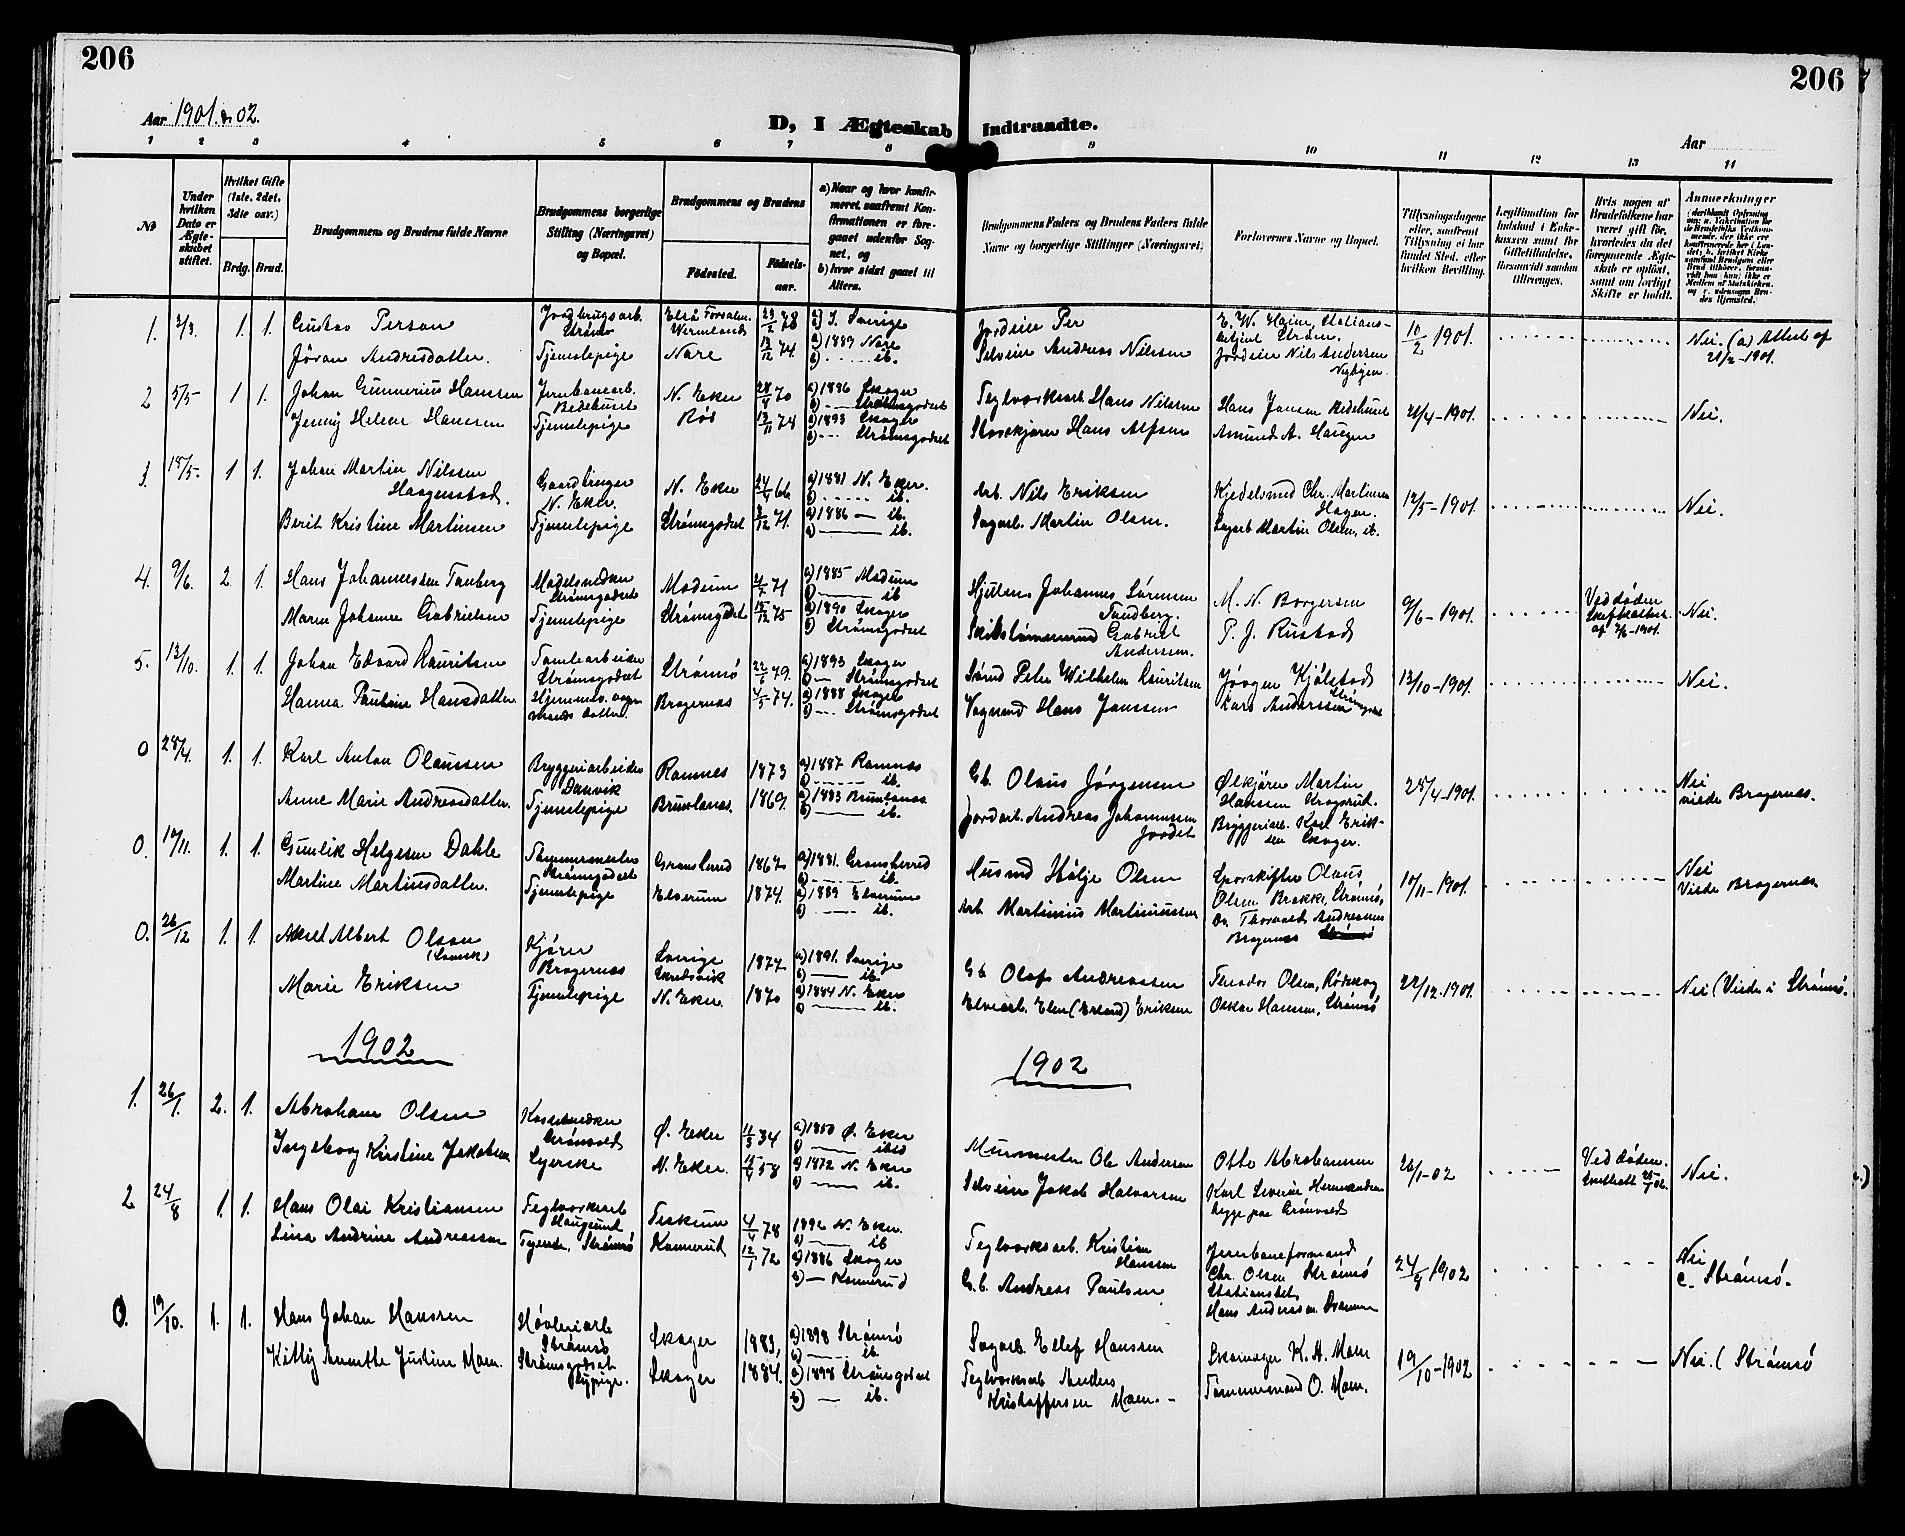 206
206
Aar 1901. & 02.
D, I Ægteskab Indtraadte.
Aar
1 2 3 4 5 6 7 8 9 10 11 12 13 14
No
Under hvilken Dato er Ægteskabet stiftet.
Hvilket Gifte (1ste, 2det, 3die osv.)
Brdg. Brud.
Brudgommens og Brudens fulde Navne
Brudgommens borgerlige Stilling (Næringsvei) og Bopæl.
Brudgommens og Brudens
Fødested. Fødselsaar.
a) Naar og hvor konfirmeret, saafremt Konfirmationen er foregaaet udenfor Sognet, og
b) hvor sidst gaaet til Alters.
Brudgommens Faders og Brudens Faders fulde Navne og borgerlige Stillinger (Næringsvei).
Forlovernes Navne og Bopæl.
Tillysningsdagene eller, saafremt Tillysning ei har fundet Sted, efter hvilken Bevilling.
Legitimation for Indskud i Enkekassen samt for Giftetilladelse, forsaavidt saadan tiltrænges.
Hvis nogen af Brudefolkene har været gift før, hvorledes da det foregaaende Ægteskab er opløst, samt om lovligt Skifte er holdt.
Anmærkninger
1. 3/3 1. 1. Gustav Person Jordbrugsarb. Strømsø 23/2 78 a) I. Sverige Jordeier Per 10/2 1901. Nei. (a) Attest af
Jøran Andresdatter. Tjenestepige Nore 13/12 74. a) 1889 Nore b) ib. Selveier Andreas Nilsen Jordeier Nils Andersen Nybyen 21/2-1901.
2 5/5 1 1. Johan Gunnerius Hansen Jernbanearb. Bedehuset N. Eker 28/8 70 a) 1886 Skoger b) Strømsgodset Teglverksarb. Hans Nilsen Hans Jansen Bedehuset 21/4-1901. Nei.
Jenny Helene Hansen Tjenestepige Röd 13/11 74 a) 1893 Skoger b) Strømsgodset Hans Alfsen Amund A. Haugen
3. 18/5 1 1. Johan Martin Nilssen Haagenstad. Gaardbruger N. Eker. N. Eker 24/4 66 a) 1881 N. Eker. b) ib. Arb. Nils Eriksen Kjedelsmed Chr. Martinsen Hagen. 12/5-1901 Nei.
Berit Kristine Martinsen Tjenestepige Strømsgodset 3/12 71. a) 1886 ib. b) ib. Sagarb. Martin Olsen. Sagarb Martin Olsen, ib.
4. 9/6. 2. 1. Hans Johannessen Tanberg Modelsnedker Strømsgodset Modum 71 a) 1885 Modum b) ib Johannes Sørensen Tandberg. M. N. Borgersen 9/6-1901. Ved døden Nei.
Maren Johanne Gabrielsen Tjenestepige Strømsgodset 15/12 75 a) 1890 Skoger b) Strømsgodset Skibstømmermand Gabriel Andersen. P. J. Rustad
5. 13/10. 1. 1. Johan Edvard Lauritsen Tomtearbeider Strømsgodset Strømsø 22/1 79. a) 1893 Skoger b) Strømsgodset Peder Wilhelm Lauritsen Jørgen Kjølstad 13/10-1901. Nei.
Hanna Pauline Hansdatter Hjemmev. datter. Bragernæs 4/5 74. a) 1888 Skoger b) Strømsgodset Vognmd Hans Jansen Lars Anderssen Strømsgodset
0 28/4. 1. 1. Karl Anton Olaussen Bryggeriarbeider Danvik Ramnes 1873 a) 1887 Ramnæs b) ib. Gb. Olaus Jørgensen Ølkjører Martin Hanssen Krogsrud. 28/4-1901. Nei
Anne Marie Andreasdatter Tjenestepige Brunlanæs. 1869. a) 1883 Brunlanæs b) ib. Jordarb. Andreas Johannessen Jordet Bryggeriarb. Karl Eriksen Skoger. viede Bragernæs.
0. 10/11. 1. 1. Gunlik Helgesen Dahle Tømmermester Strømsgodset Gransherred 1867 a) 1881. Gransherred b) ib. Husmd Hølje Olsen Sporskifter Olaus Olsen Brakke, Strømsø, 10/11-1901. Nei
Martine Martinsdatter. Tjenestepige Elverum 1874. a) 1889 Elverum b) ib. Arb. Martinus Martinussen Thorvald Andreassen Bragernæs Viede Bragernæs
0. 26/12 1. 1. Aksel Albert Olsson (svensk) Kjører Bragernæs Sverige 1877 a) 1891. Sverige b) ib. Gb. Olof Andreassen Theodor Olsen, Rødskog 22/12.1901. Nei (Viede i Strømsø.
Marie Eriksen Tjenestepige N. Eker. 1870 a) 1884 N. Eker b) ib. Elvearb. Elen (Erland) Eriksen Oskar Hansen, Strømsø
1902
1902
1. 26/1. 2. 1. Abraham Olsen Grønvold Ø. Eker 11/3 34 a) 1850 Ø. Eker b) ibid Murmester Ole Andersen Otto Abrahamsen 26/1-02 Ved døden. Nei.
Ingeborg Kirstine Jakobsen Syerske N. Eker. 58 a) 1872 N. Eker b) ib. Selveier Jakob Halvorsen Karl Severin Hermandsen begge paa Grønvold
2 24/8 1. 1. Hans Olai Kristiansen Teglverksarb Haugsund Fiskum 4/4 78 1892 N. Eker. b) ib Teglverksarb. Kristian Hansen Jernbaneformand Chr. Olsen Strømsø 24/8 1902 Nei
Lina Andrine Andreassen Tyende, Strømsø Konnerud 12/1 72 a) 1886 Skoger b) Konnerud G.b. Andreas Paulsen Stationsbet. Hans Anderssen Drammen c- Strømsø.
0. 19/10. 1. 1. Hans Johan Hansen Høvleriarb Strømsø Skoger 1883, a) 1898 Strømsø b) ib. Sagarb. Ellef Hanssen K. H. Moen 19/10-1902 Nei. (Strømsø
Kitty Annette Justine Moen. Strømsgodset Sypige. Skoger 1884. a) 1898 Strømsgodset b) ib. Teglverksarb Anders Kristoffersen Moen. Tømmermand O. Moen.